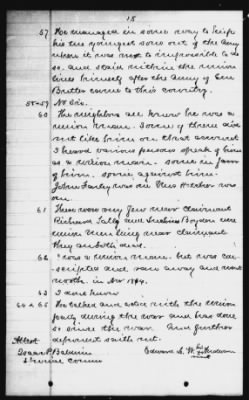 15
57 He managed in some way to keep
his two youngest sons out of the army
when it was next to impossible to do
so, and staid within the union
lines himself after the Army of Gen
Butler came to this country.
58-59 No sir.
60 The neighbors all knew he was a
union man. Some of them did
not like him on that account
I heard various persons speak of him
as a union man. some in favor
of him. some against him.
John was one
one.
61 There were very few near claimant
Richard and Boyden were
union men living near claimant
They are both dead.
62 I was a union man. but was con-
scripted and ran away and went
north. in Nov 1864.
63 I dont know
64 & 65 He talked and voted with the union
party during the war and has done
so since the war. And further
deponent saith not.
Attest
Isaac P. Baldwin Edward S. W. his Anderson
Special Comr mark